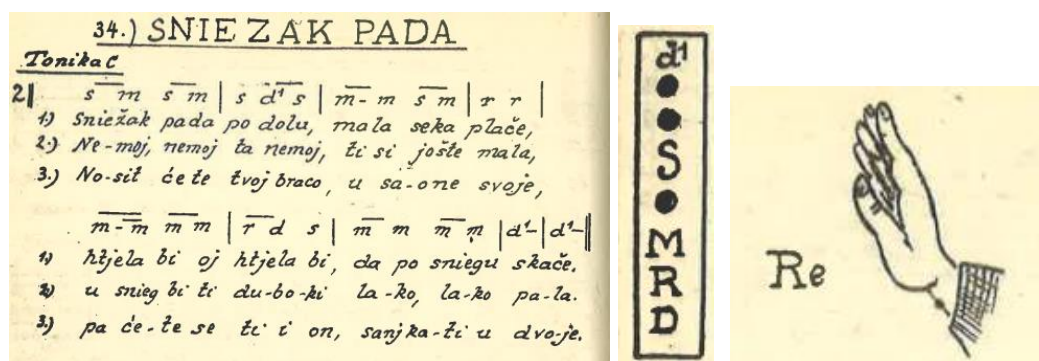 34.) SNIEZAK PADA
Tonika C
2| s m s m | s d¹ s | m - m s m | r r |
1.) Sniežak pada po dolu, mala seka plače,
2.) Ne-moj, nemoj ta nemoj, ti si jošte mala,
3.) No-sit će te tvoj braco, u sa-one svoje,
m - m m m | r d s | m m m m | d¹- | d¹- ||
1) htjela bi oj htjela bi, da po sniegu skače.
2) u snieg bi ti du-bo-ki la-ko, la-ko pa-la.
3.) pa će-te se ti i on, sanjka-ti u dvo-je.
d¹
S
M
R
D
Re